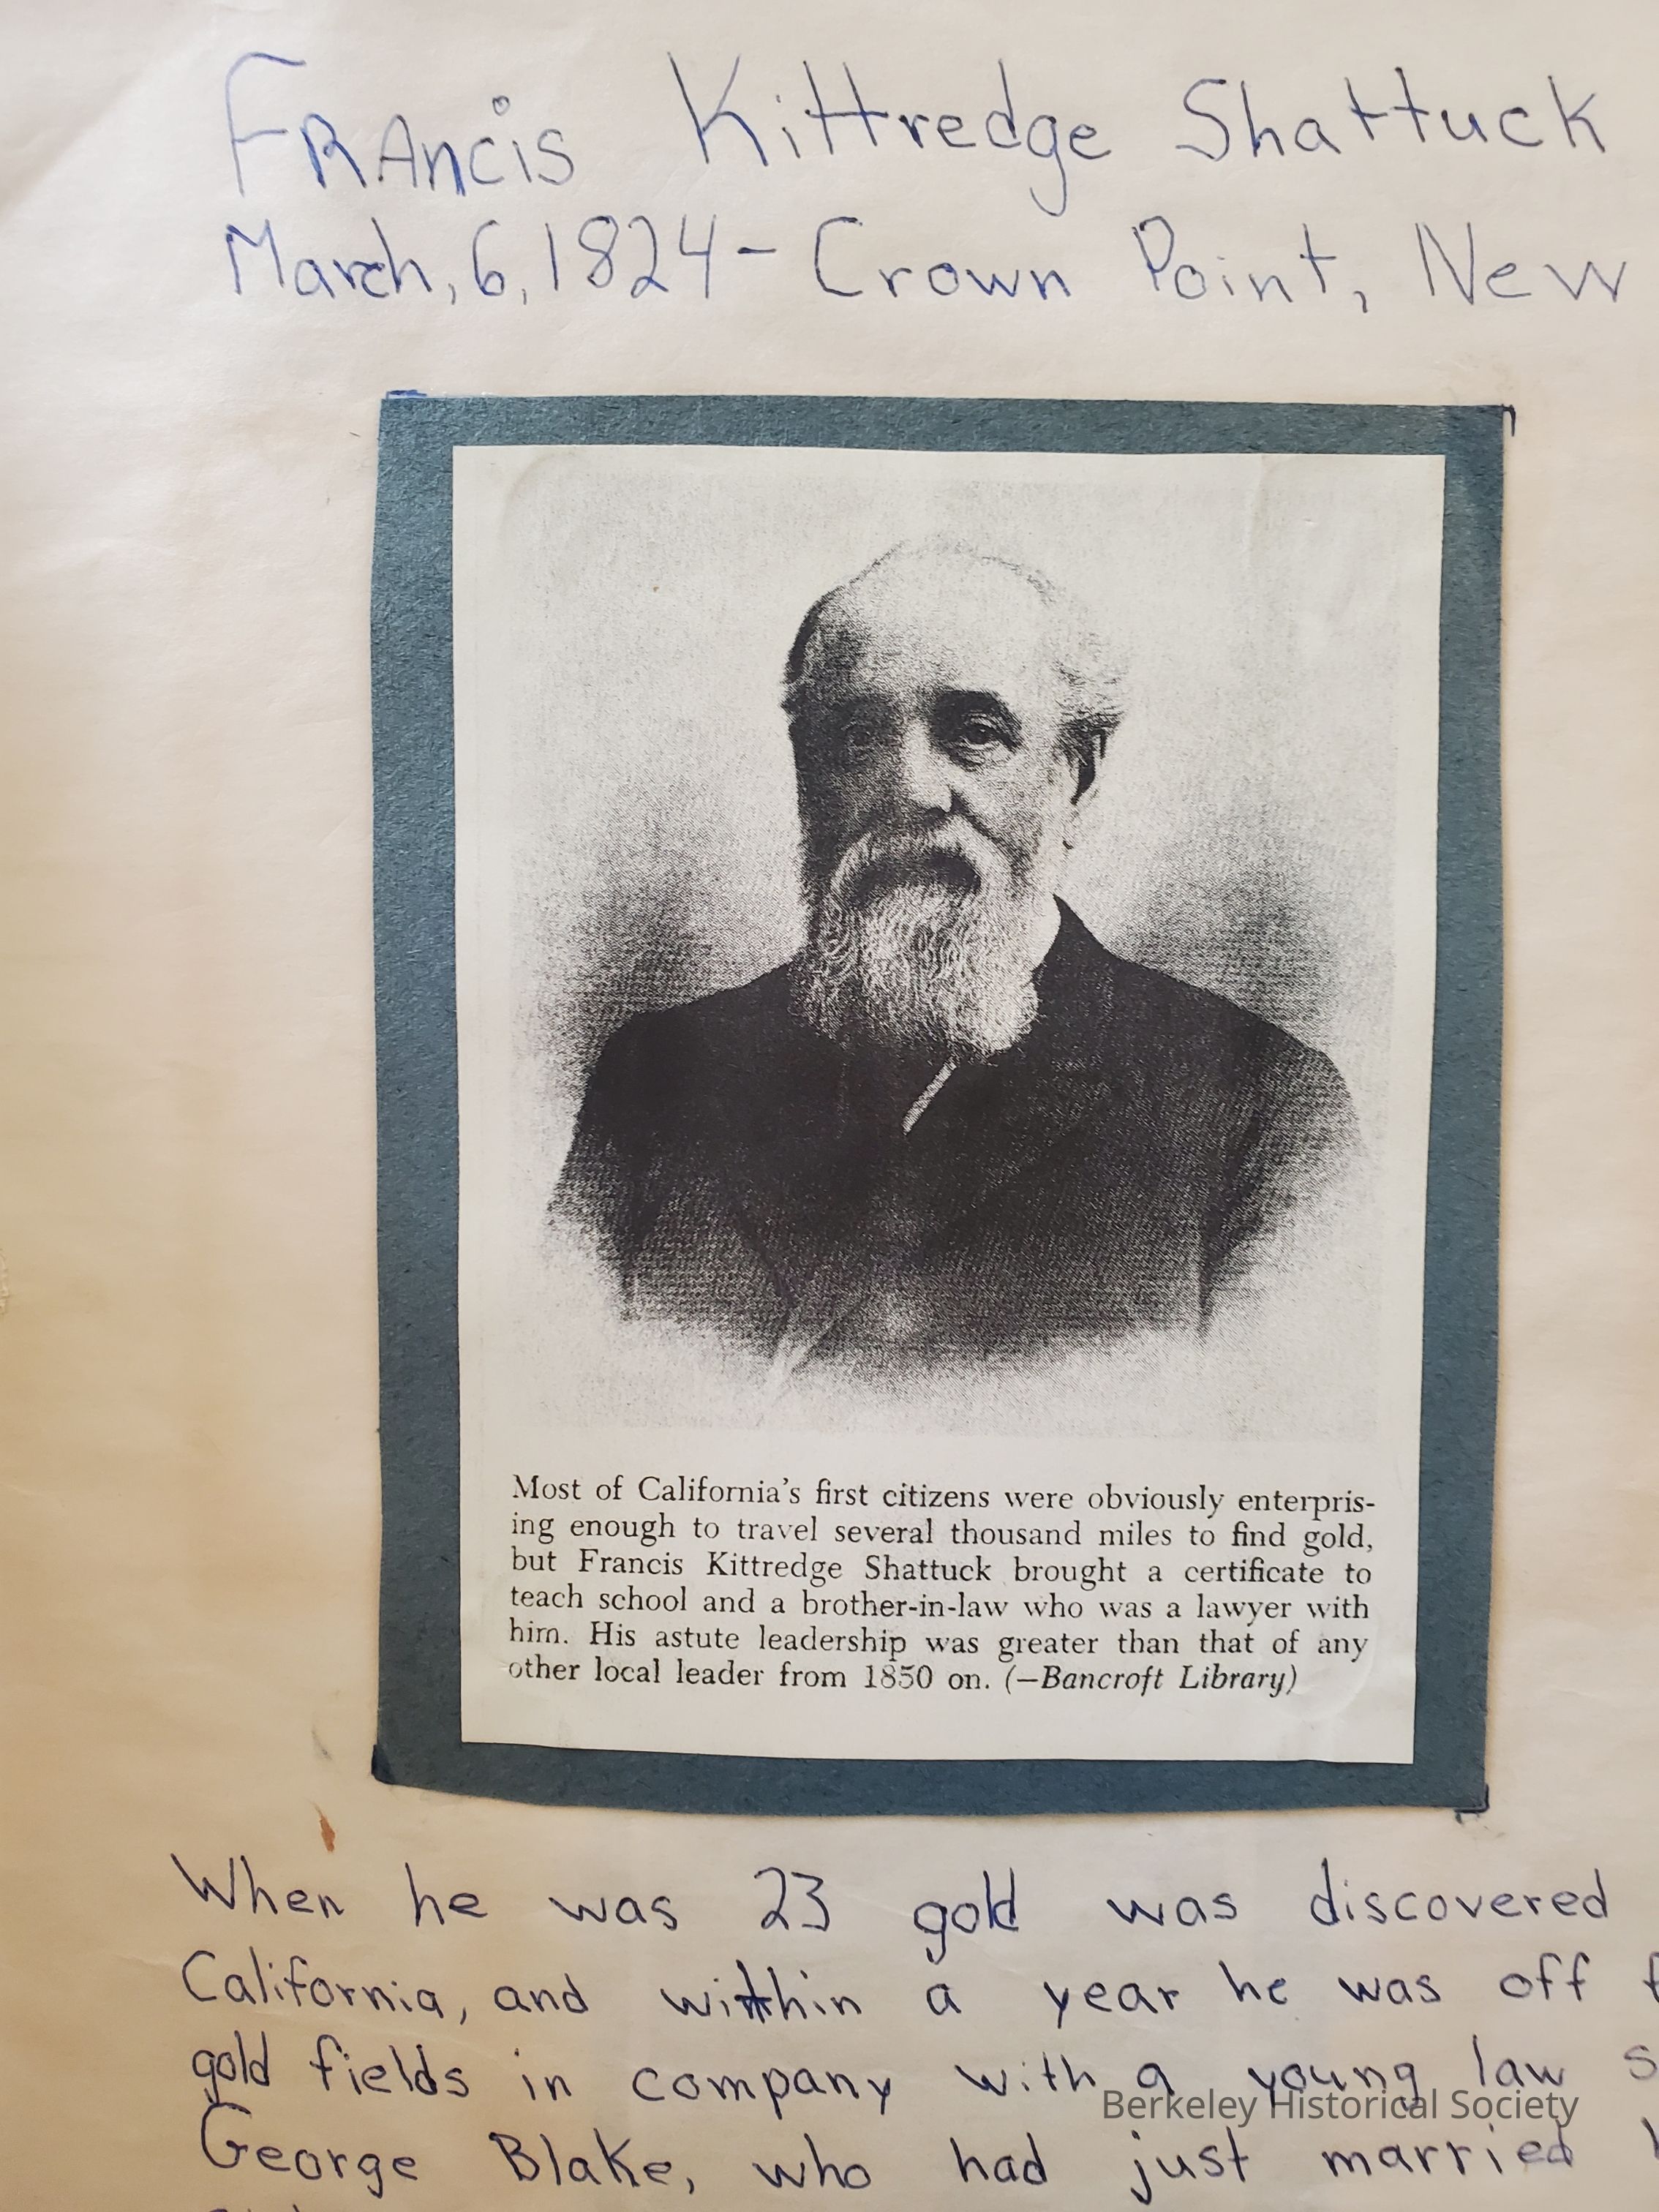 Francis Kittredge Shattuck
March, 6, 1824 - Crown Point, New
Most of California's first citizens were obviously enterpris-
ing enough to travel several thousand miles to find gold,
but Francis Kittredge Shattuck brought a certificate to
teach school and a brother-in-law who was a lawyer with
him. His astute leadership was greater than that of any
other local leader from 1850 on. (—Bancroft Library)
When he was 23 gold was discovered
California, and within a year he was off
gold fields in company with a young law
Berkeley Historical Society
George Blake, who had just married